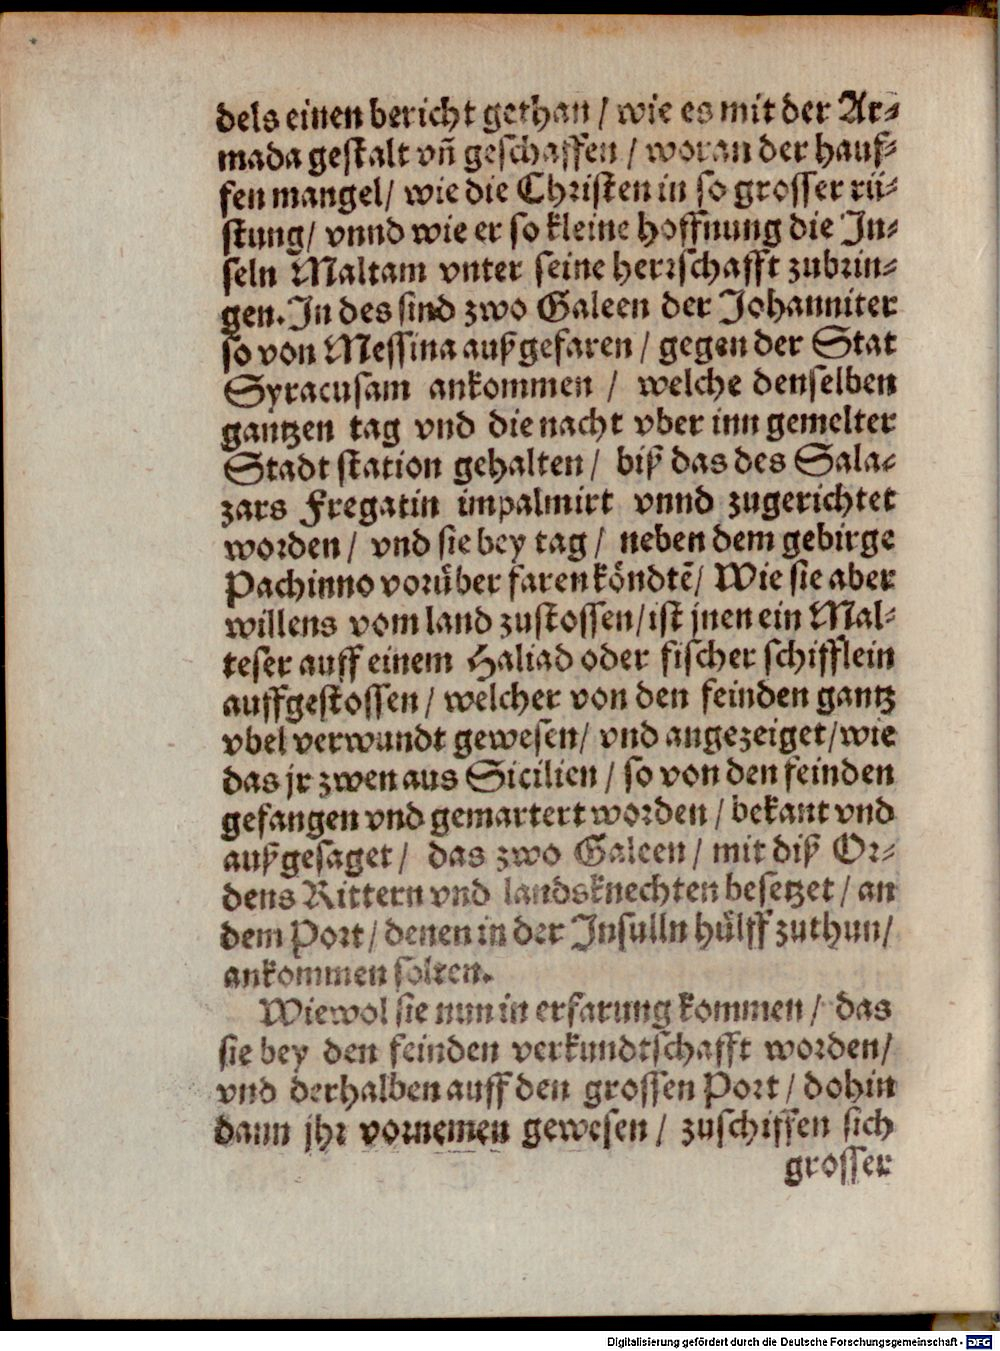 dels einen bericht gethan / wie es mit der Ar⸗
mada gestalt vñ geschaffen / woran der hauf⸗
fen mangel / wie die Christen in so grosser rü⸗
stung / vnnd wie er so kleine hoffnung die In⸗
seln Maltam vnter seine herrschafft zubrin⸗
gen. In des sind zwo Galeen der Johanniter
so von Messina außgefaren / gegen der Stat
Syracusam ankommen / welche denselben
gantzen tag vnd die nacht vber inn gemelter
Stadt station gehalten / biß das des Sala⸗
zars Fregatin impalmirt vnnd zugerichtet
worden / vnd sie bey tag / neben dem gebirge
Pachinno vorüber faren köndtē / Wie sie aber
willens vom land zustossen / ist jnen ein Mal⸗
teser auff einem Haliad oder fischer schifflein
auffgestossen / welcher von den feinden gantz
vbel verwundt gewesen / vnd angezeiget / wie
das jr zwen aus Sicilien / so von den feinden
gefangen vnd gemartert worden / bekant vnd
außgesaget / das zwo Galeen / mit diß Or⸗
dens Rittern vnd landsknechten besetzet / an
dem Port / denen in der Insulln hülff zuthun /
ankommen solten.
Wiewol sie nun in erfarung kommen / das
sie bey den feinden verkundtschafft worden /
vnd derhalben auff den grossen Port / dohin
dann jhr vornemen gewesen / zuschiffen sich
grosser
Digitalisierung gefördert durch die Deutsche Forschungsgemeinschaft - DFG